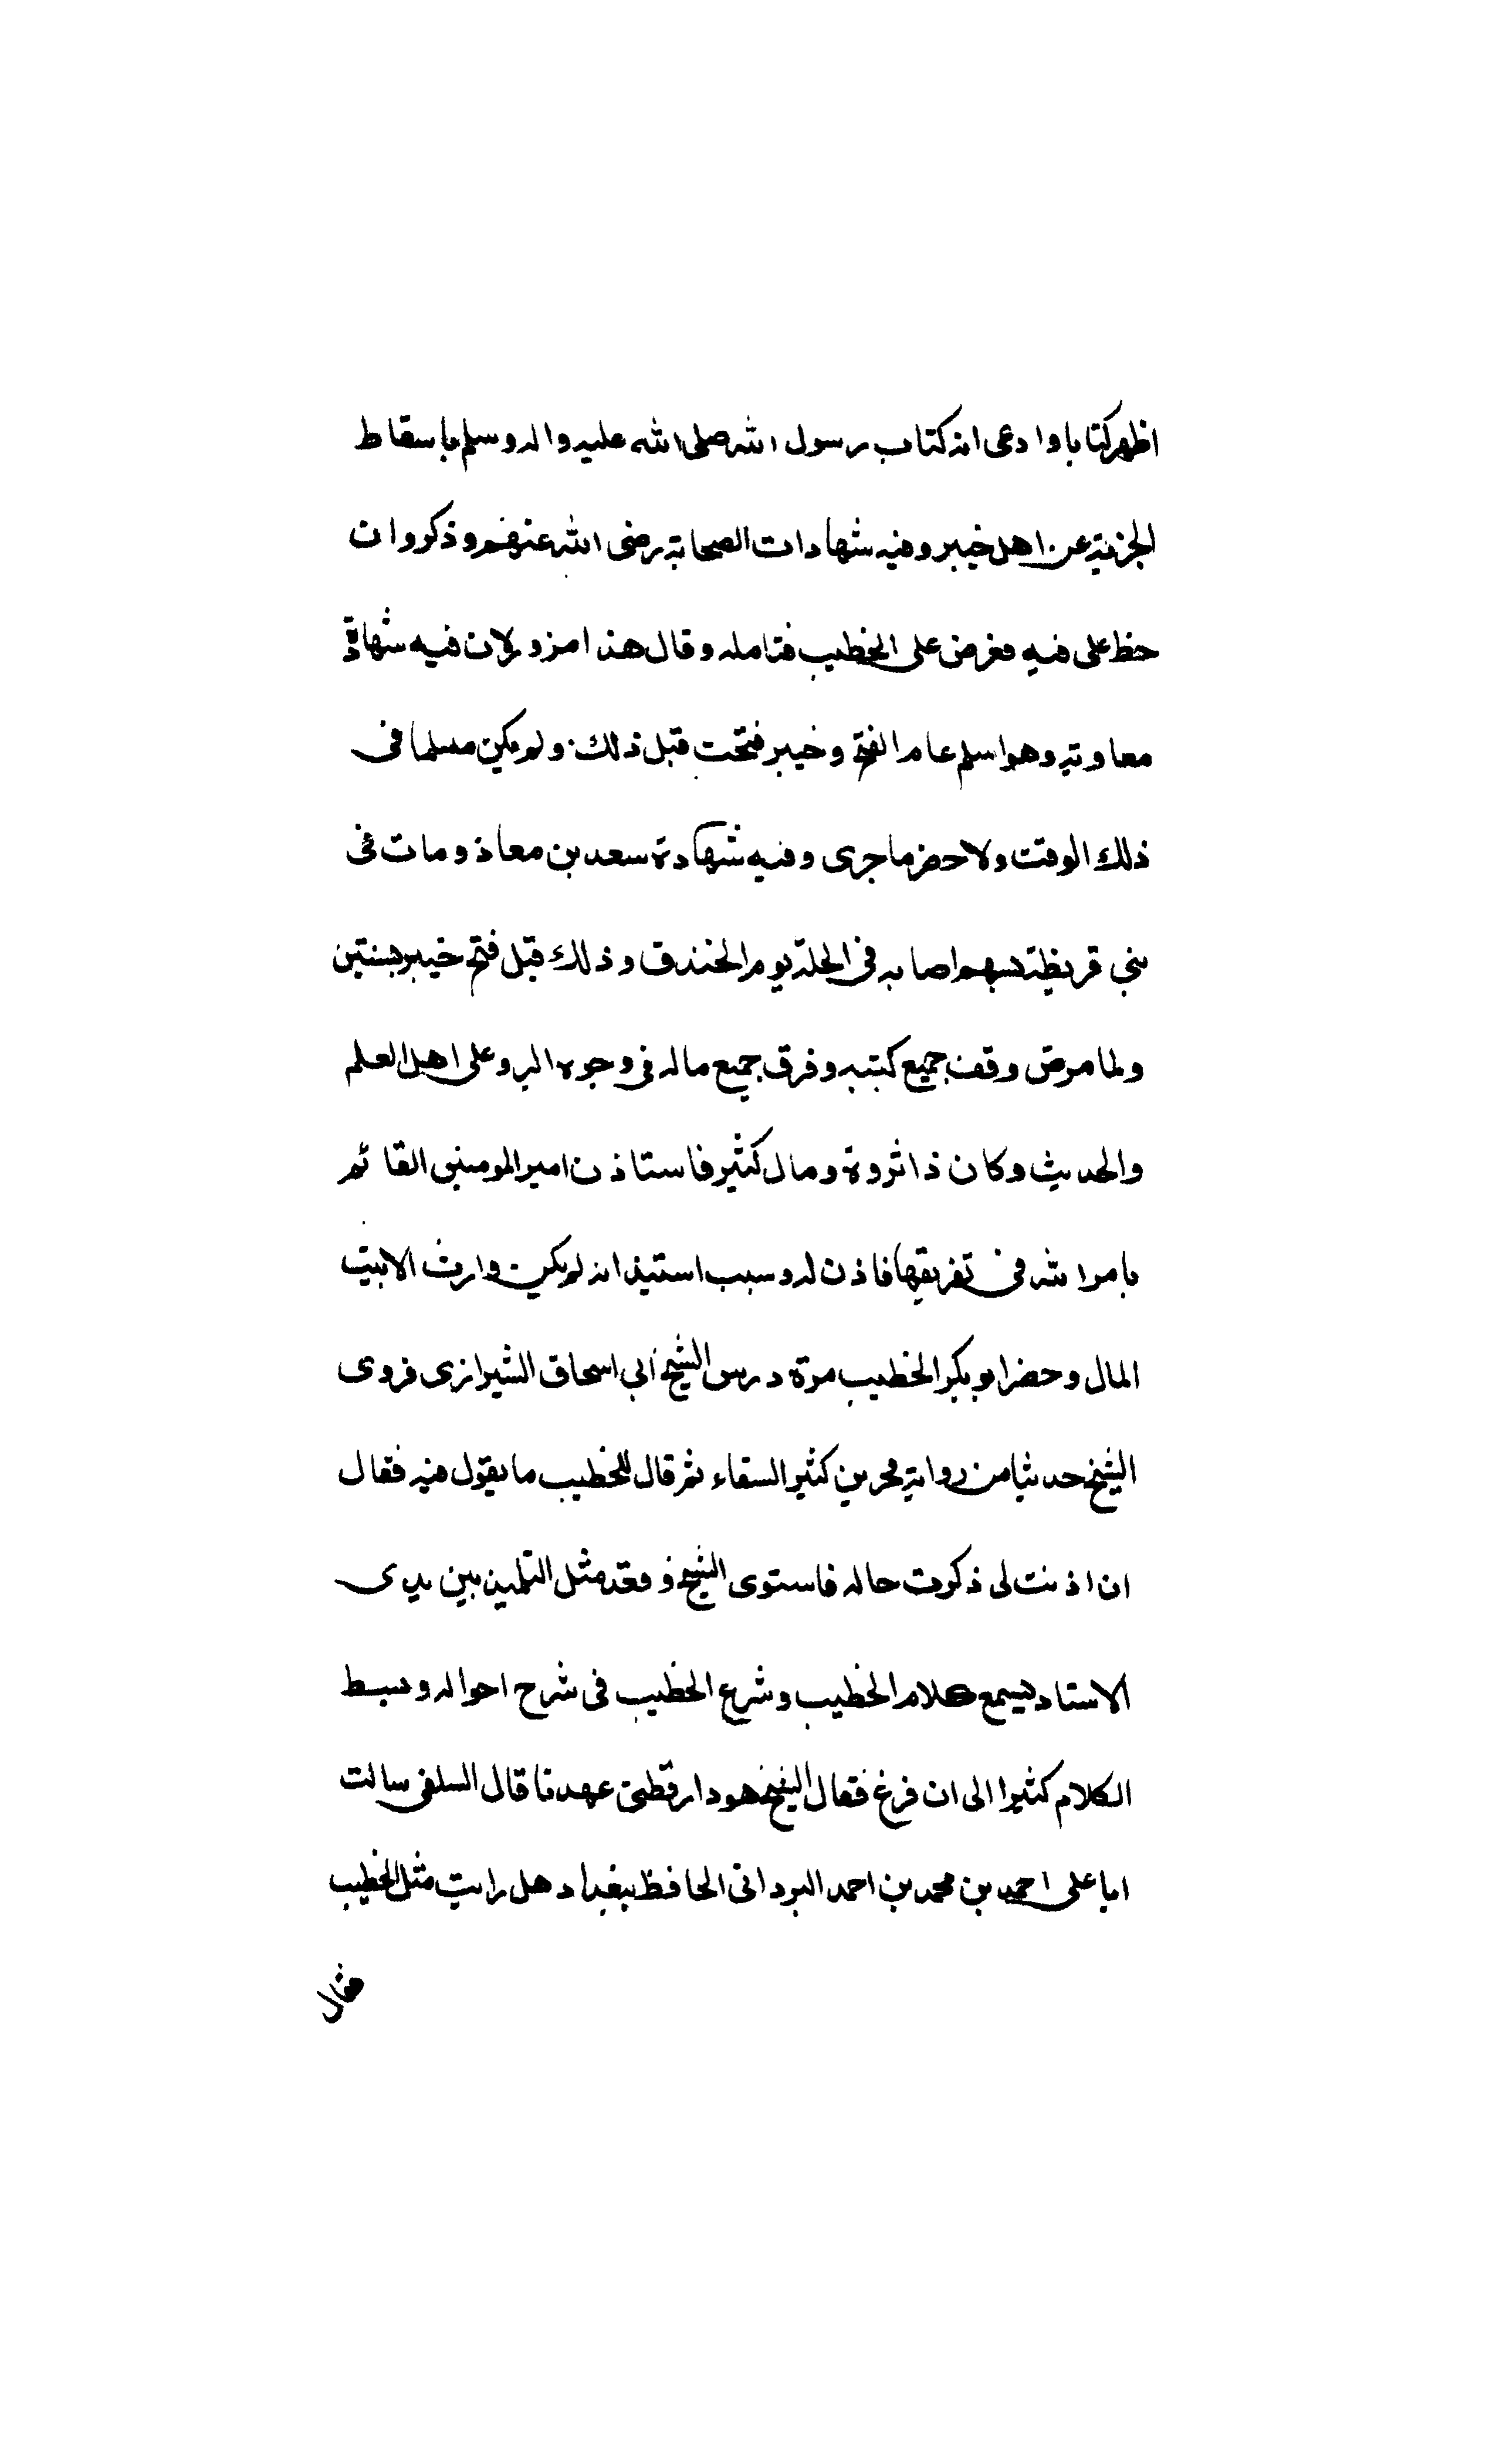 اظهر كتابا وادعى انه كتاب رسول الله صلى الله عليه واله وسلم باسقاط
الجزية عن اهل خيبر وفيه شهادات الصحابة رضى الله عنهم وذكروا ن
خط على فيه فعرض على الخطيب فتامله وقال هذا مزور لان فيه شهادة
معاوية وهو اسلم عام الفتح وخيبر فتحت قبل ذلك ولم يكن مسلما فى
ذلك الوقت ولا حضر ما جرى وفيه شهادة سعد بن معاذ ومات فى
بني قريظة بسهم اصابه فى اكحله يوم الخندق وذلك قبل فتح خيبر بسنتين
ولما مرض وقف جميع كتبه وفرق جميع ماله فى وجوه البر وعلى اهل العلم
والحديث وكان ذا ثروة ومال كثير فاستاذن امير المومنين القائم
بامر الله فى تفريقها فاذن له وسبب استيذانه لم يكن وارث الا بيت
المال وحضر ابو بكر الخطيب مرة درس الشيخ أبي اسحاق الشيرازى فروى
الشيخ حديثا من رواية بحر بن كثير السقاء ثم قال للخطيب ما يقول فيه فقال
ان اذنت لى ذكرت حاله فاستوى الشيخ وقعد مثل التلميذ بين يدى
الاستاد يسمع كلام الخطيب وشرع الخطيب فى شرح احواله وبسط
الكلام كثيرا الى ان فرغ فقال الشيخ هو دارقطنى عهدنا قال السلفى سالت
ابا على احمد بن محمد بن احمد البردانى الحافظ ببغداد هل رايت مثل الخطيب
فقال